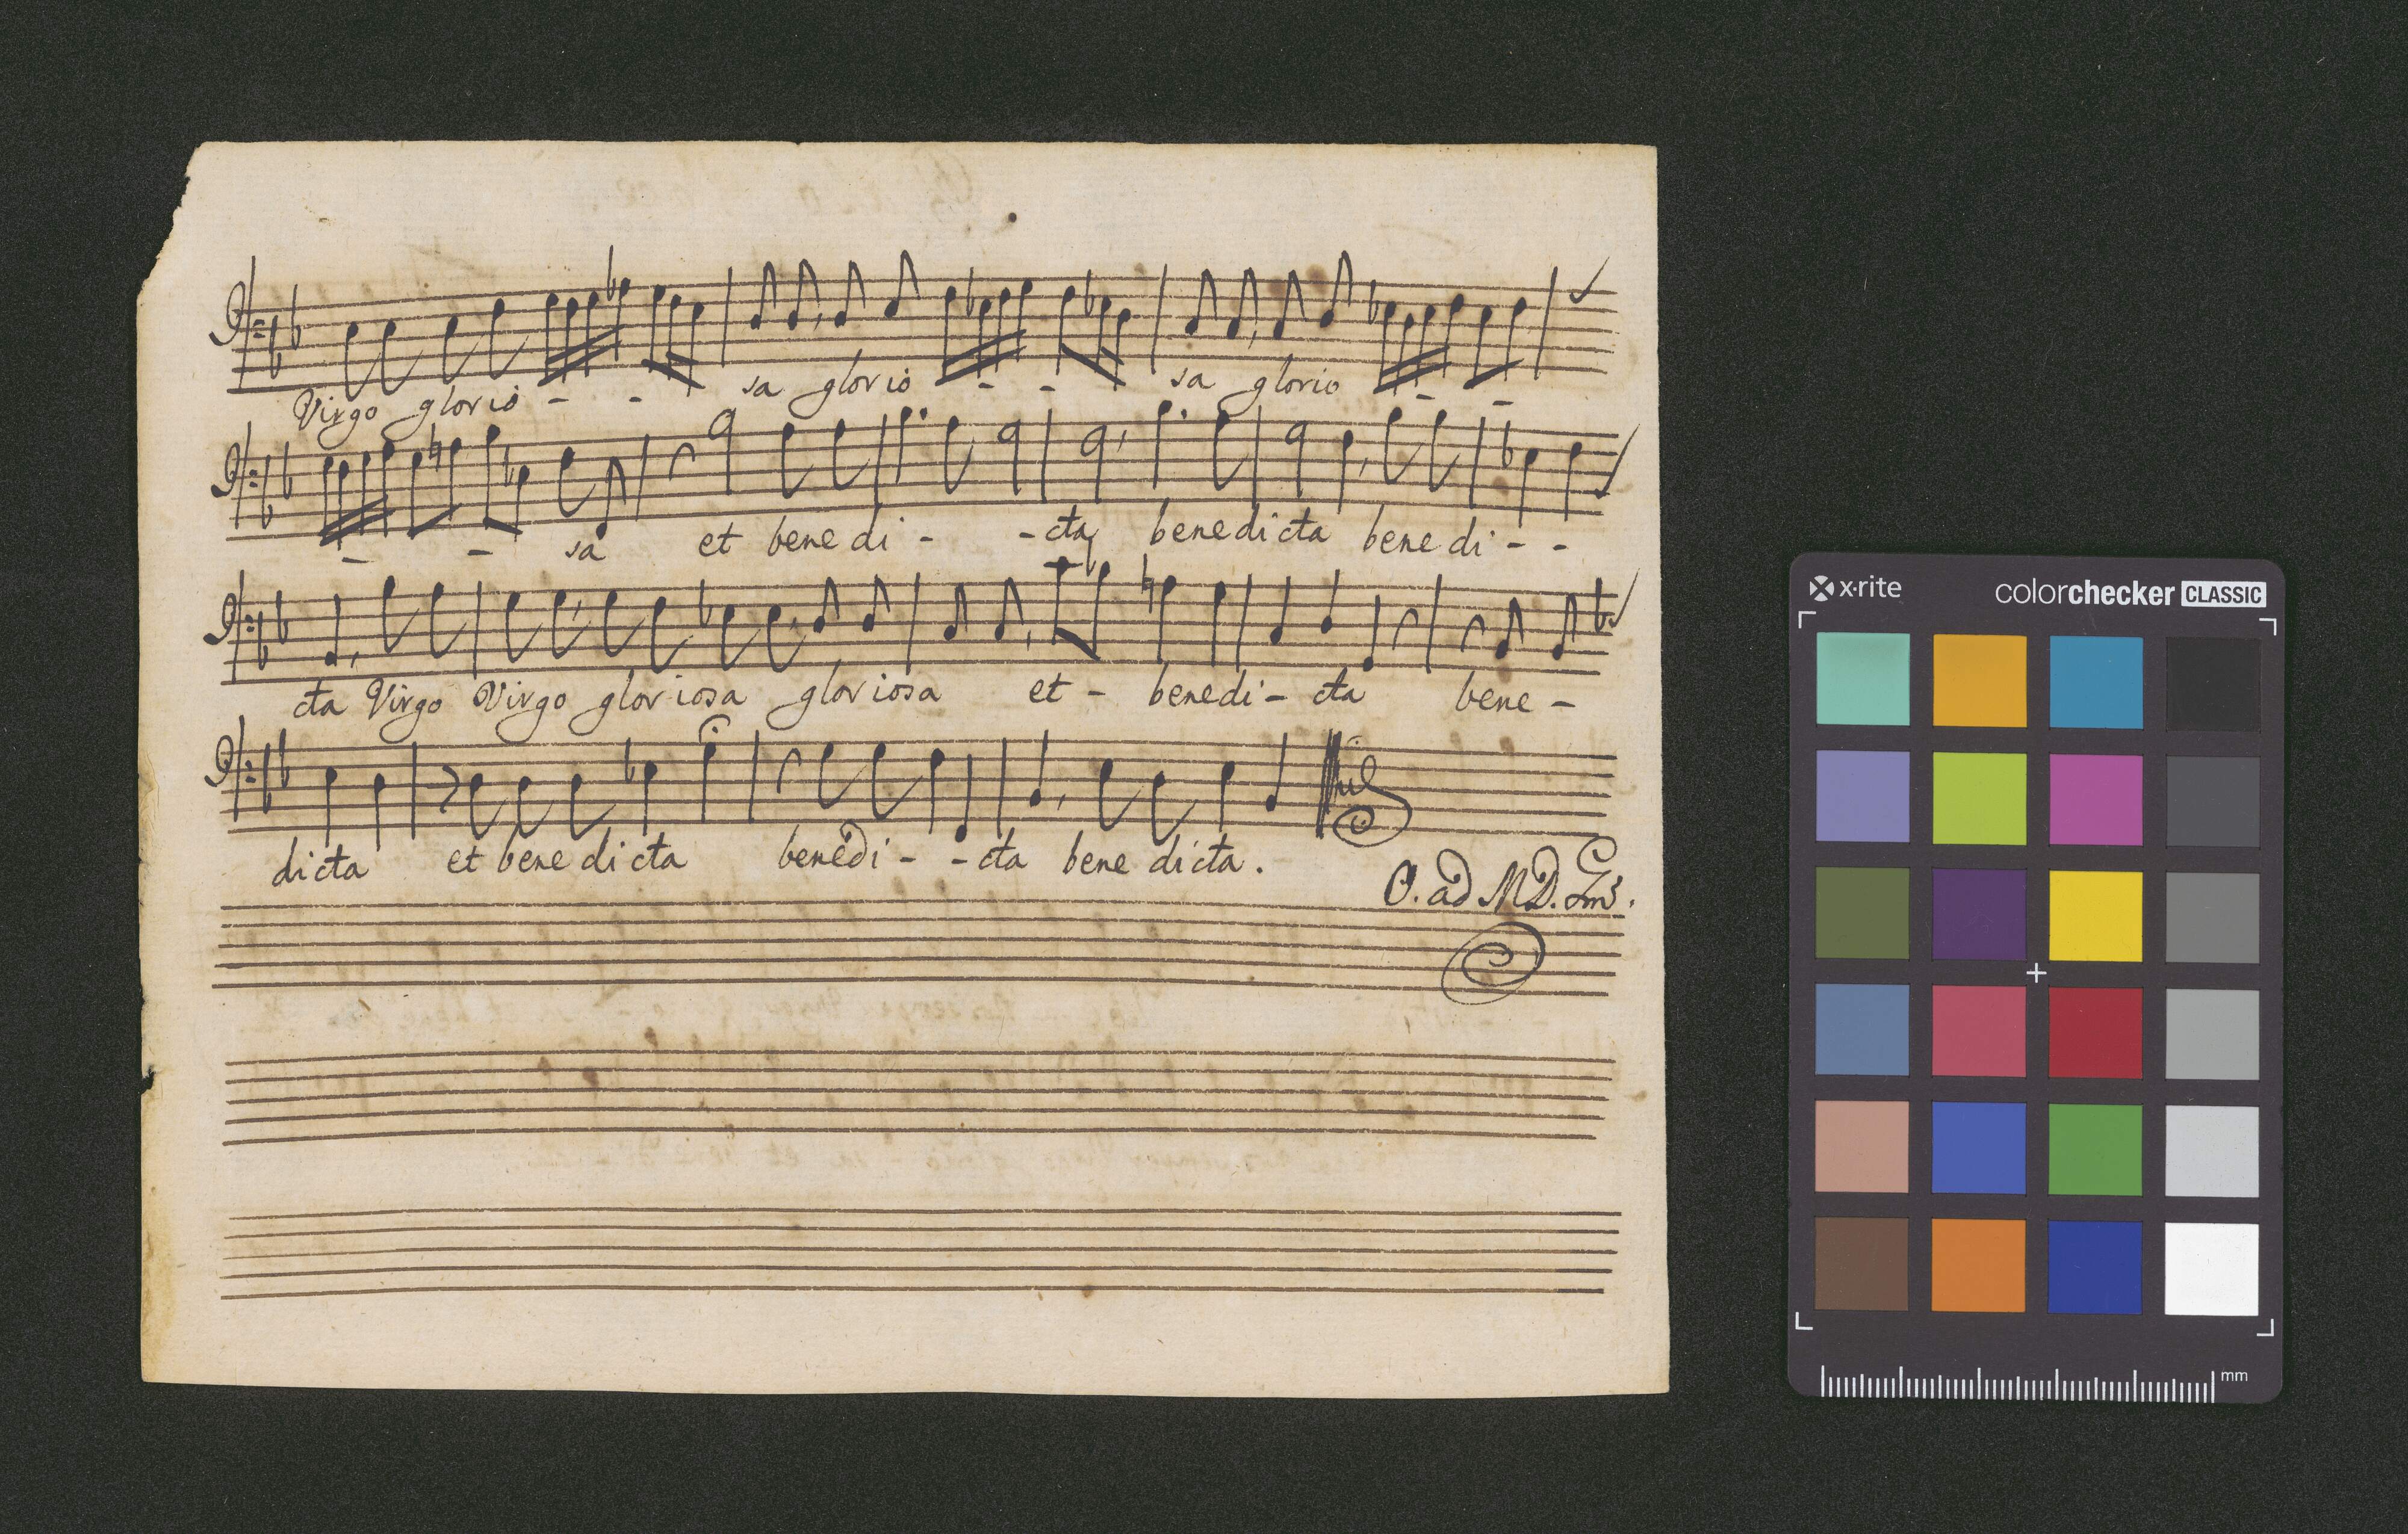 Virgo glorio - - sa glorio - - sa glorio - -
- - sa et bene di - - cta benedicta bene di - -
cta Virgo Virgo gloriosa gloriosa et - benedi - cta bene -
dicta et bene dicta benedi - - cta bene dicta.
O. ad M D.
x·rite colorchecker CLASSIC
mm